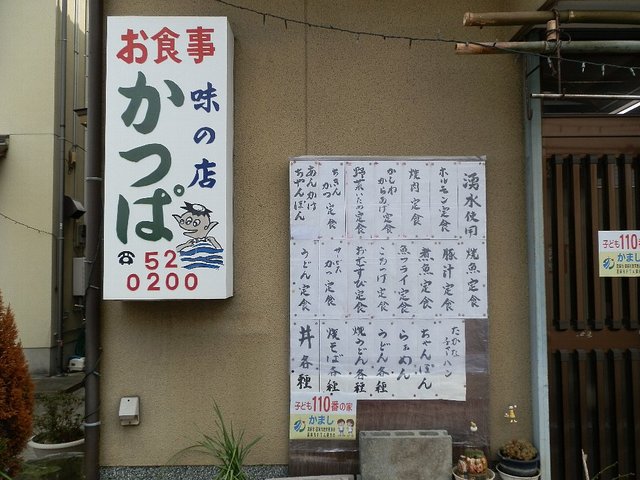 お食事
味の店
かっぱ
☎52
0200
湧水使用
ホルモン定食
焼肉定食
かしわ
からあげ定食
野菜いため定食
ちきん
かつ定食
あんかけ
ちゃんぽん
焼魚定食
豚汁定食
煮魚定食
魚フライ定食
おむすび定食
かつ定食
うどん定食
たかな
チャーハン
ちゃんぽん
らぁめん
うどん各種
焼うどん各種
焼そば各種
丼各種
子ども110番の家
かまし
子ども110番
かまし